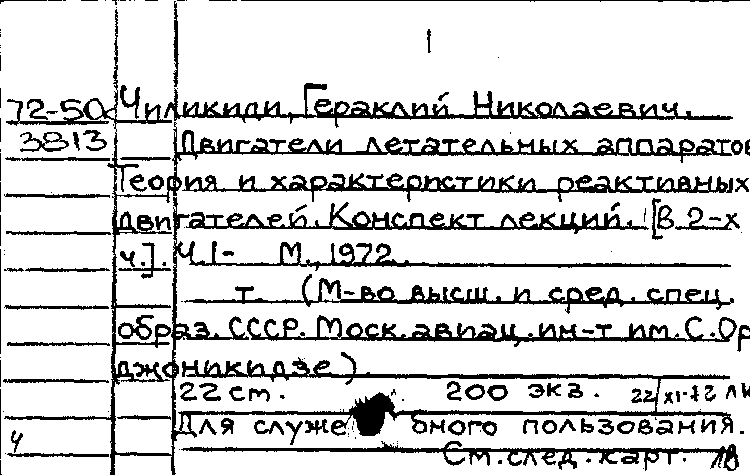 72-50 Чиликиди, Гераклий Николаевич.
3813 Двигатели летательных аппаратов
Теория и характеристики реактивных
двигателей. Конспект лекций. [В 2-х
ч.]. Ч. I- М., 1972.
т. (М-во высш. и сред. спец.
образ. СССР. Моск. авиац. ин-т им. С. Ор
джоникидзе).
22 см. 200 экз.
Для служебного пользования.
Ч См. след. карт. 18